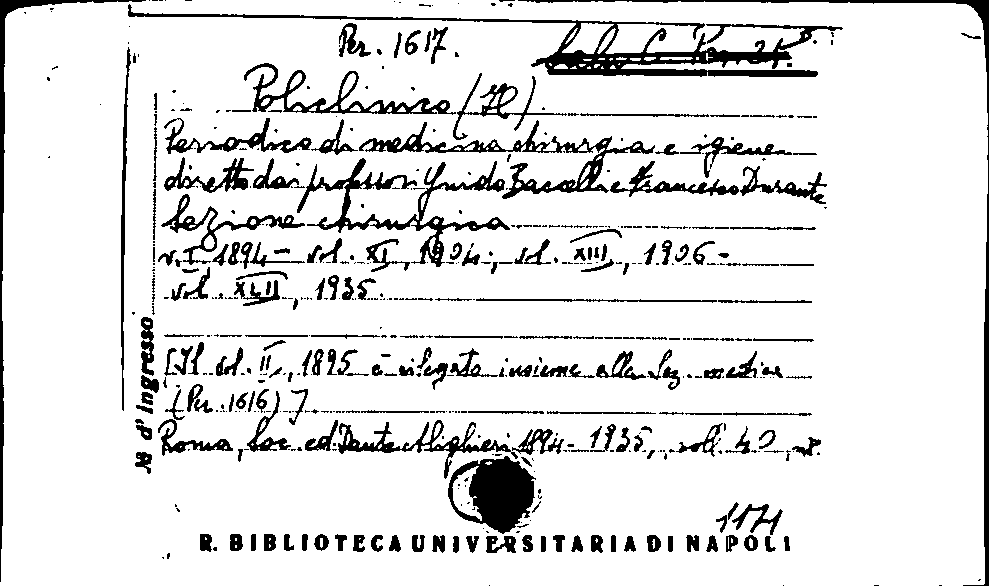 Per. 1617.
Policlinico (Il)
Periodico di medicina, chirurgia e igiene
diretto dai professori Guido Baccelli e Francesco Durante
Sezione chirurgica
v. I 1894 - vol. XI, 1904; vol. XIII, 1906 -
vol. XLII, 1935.
[Il vol. II, 1895 è rilegato insieme alla Sez. medica
(Per. 1616)].
Roma, Soc. ed. Dante Alighieri 1894 - 1935, voll. 40,
№ d'Ingresso
1171
R. BIBLIOTECA UNIVERSITARIA DI NAPOLI